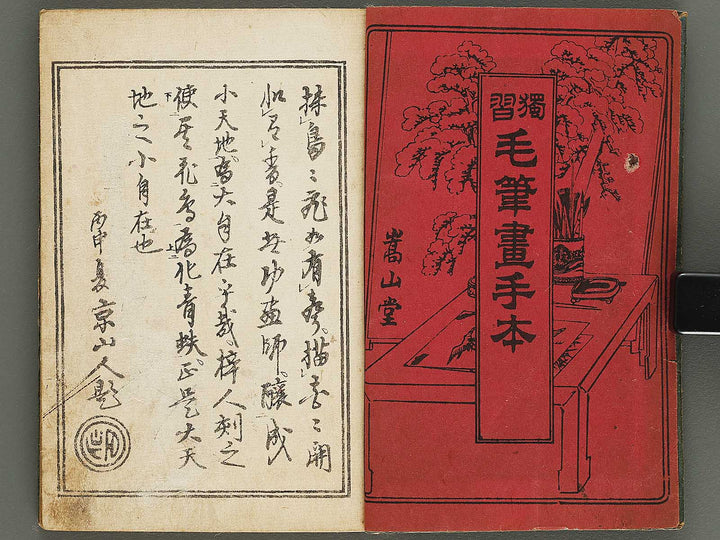 獨習
毛筆畫手本
嵩山堂
抹鳥〻飛如有聲、描花〻開
如有香、是其妙画師、釀成
小天地、為大自在乎哉、梓人刻之
使其飛鳥為化青蚨、正是大天
地之小自在也
丙申夏 京山人題